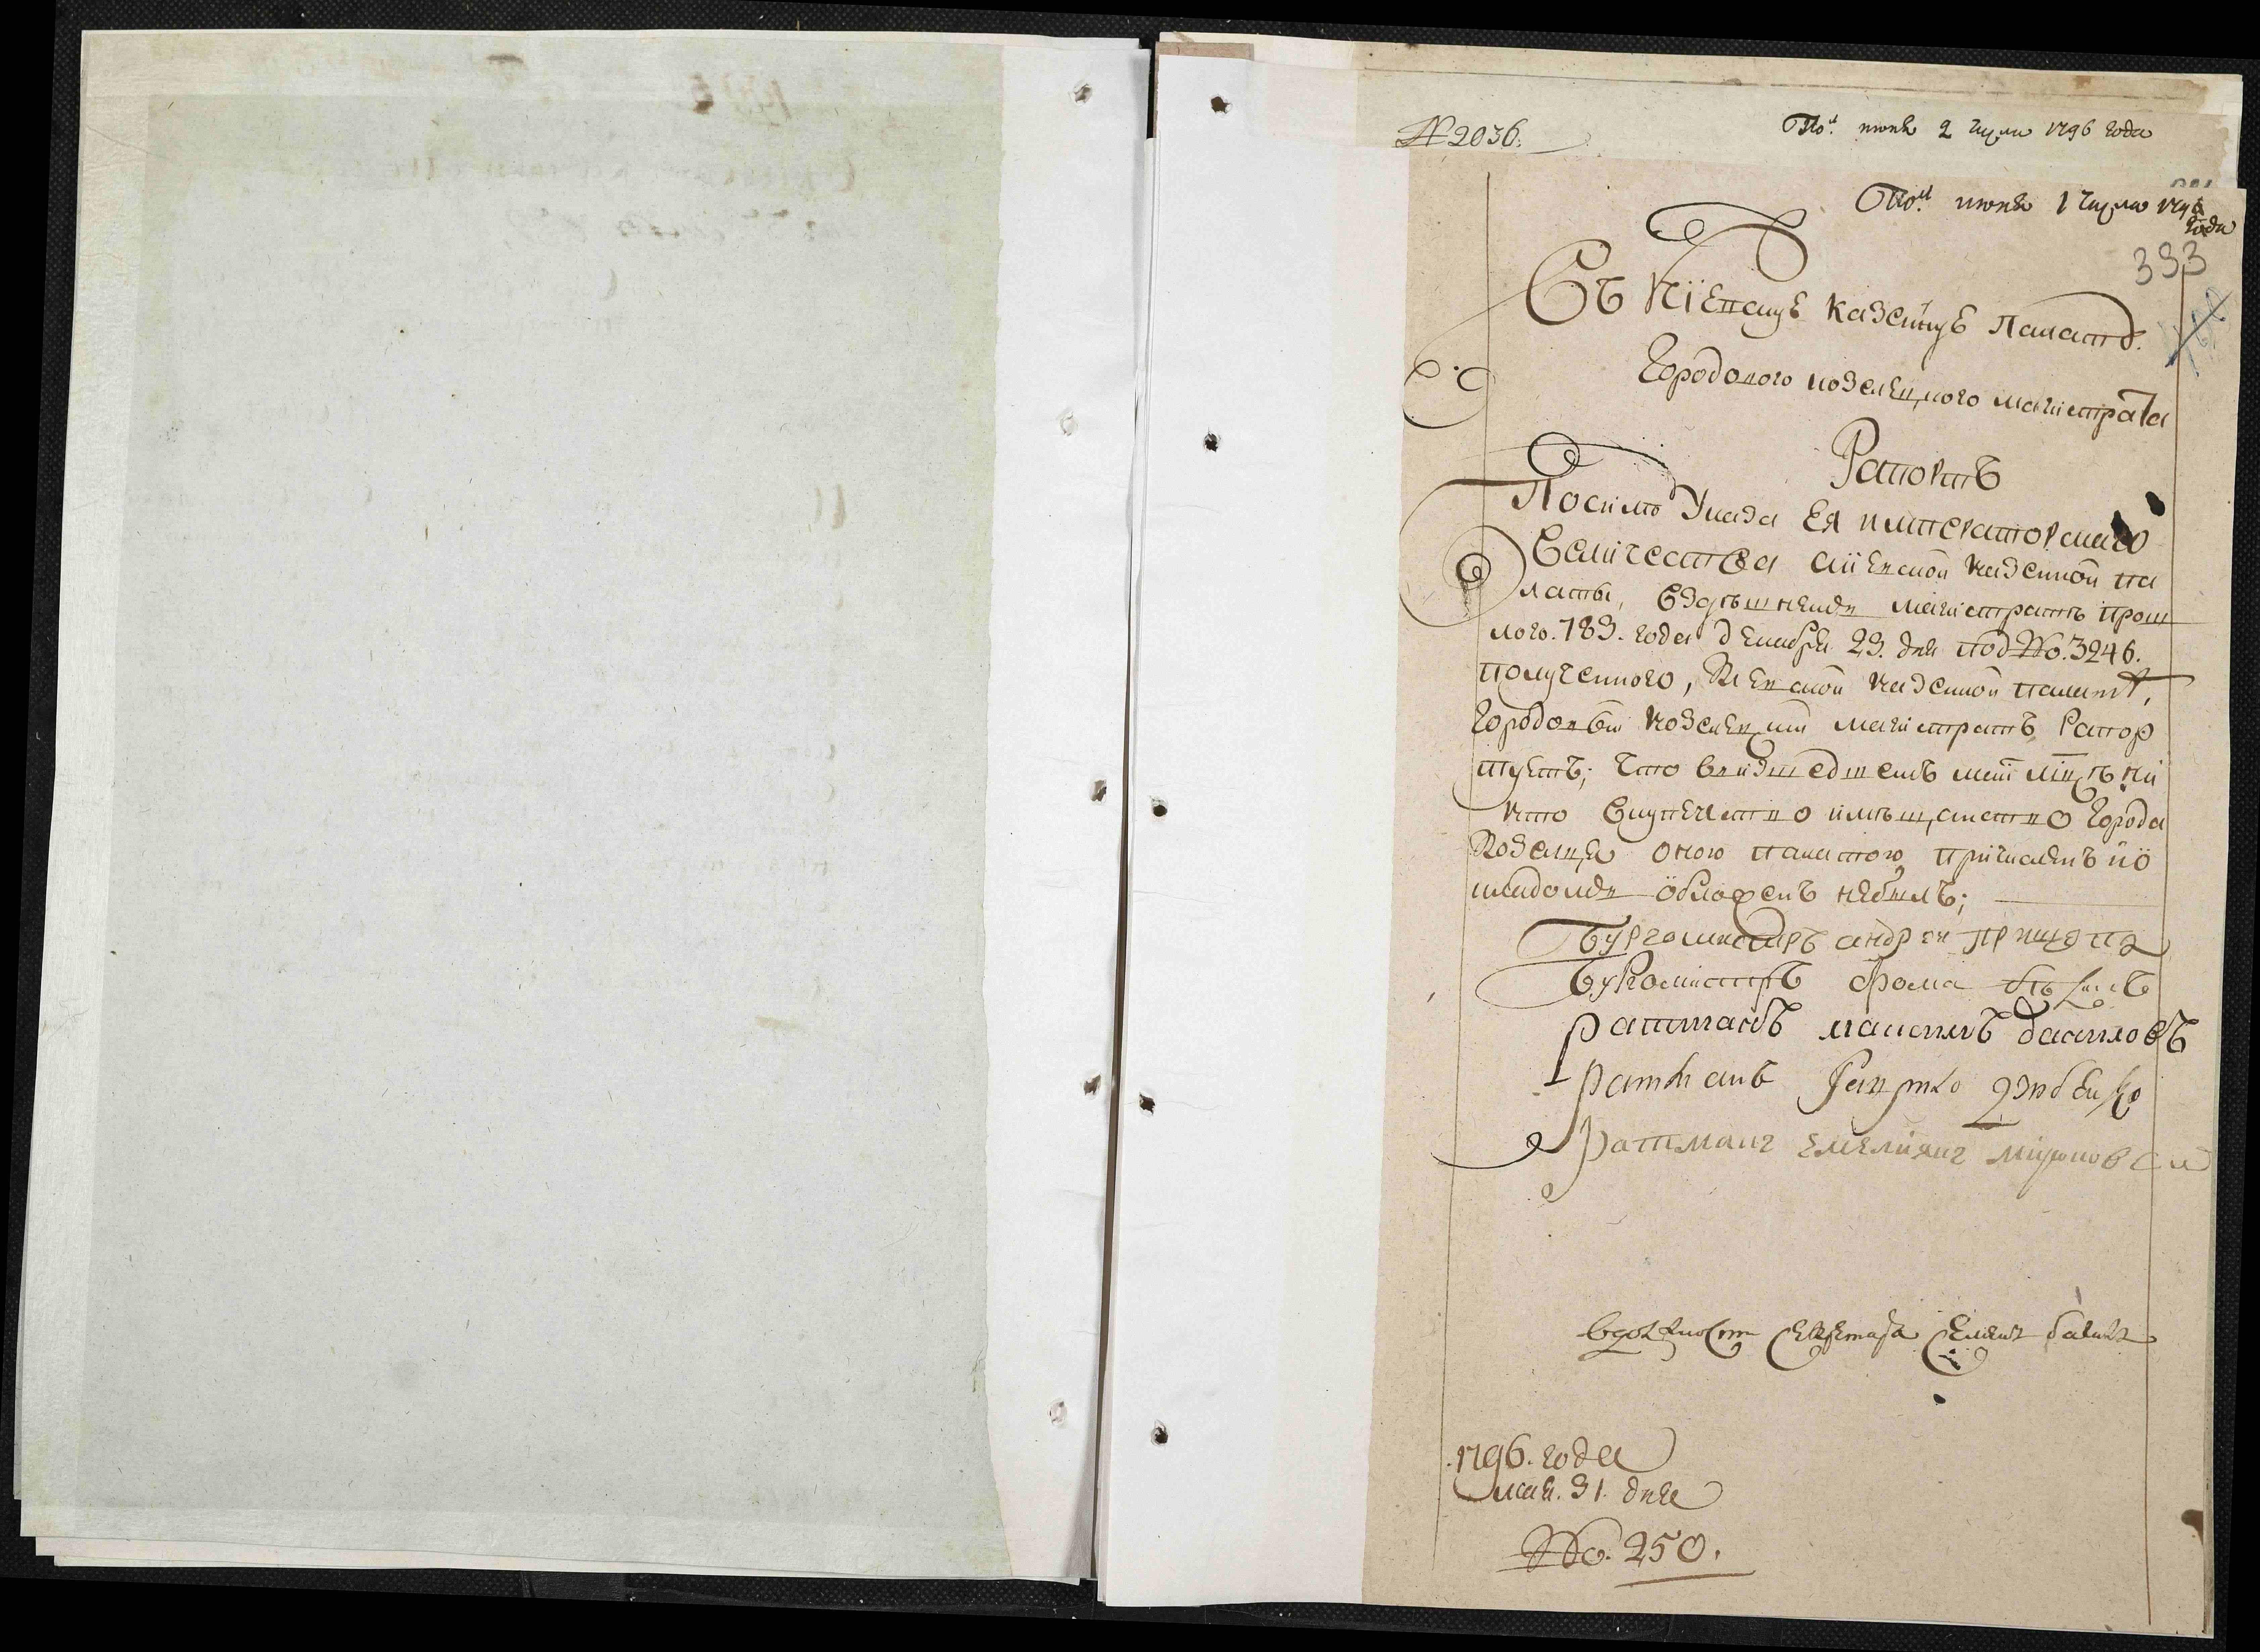 № 2036.
По: июня 2 числа 1796 года
По: июня 1 числа 1796
года
393
Въ Кіевскую казенную Палату.
Городового козелецкого магистрата
Рапортъ
Посилѣ Указа ЕЯ императорскаго
Величества киевской казенной па
латы, вздѣшнемъ магистратѣ прош
лого. 789. года декабря 29. дня под No. 3246.
полученного, Киевской казенной палатѣ,
городовый козелецкий магистратъ рапор
туетъ; что в шедшемъ маіи мцѣ ни
кто вкупечество имѣщанство города
Козелца оною палатою причисленъ ио
кладомъ обложенъ небылъ;
Бургомистръ андреи прищепа
Бургомистръ фома
ратманъ максимъ василовъ
ратманъ
ратманъ емелиянъ
вдолжност секретара
1796. года
мая. 31. дня
No. 250.